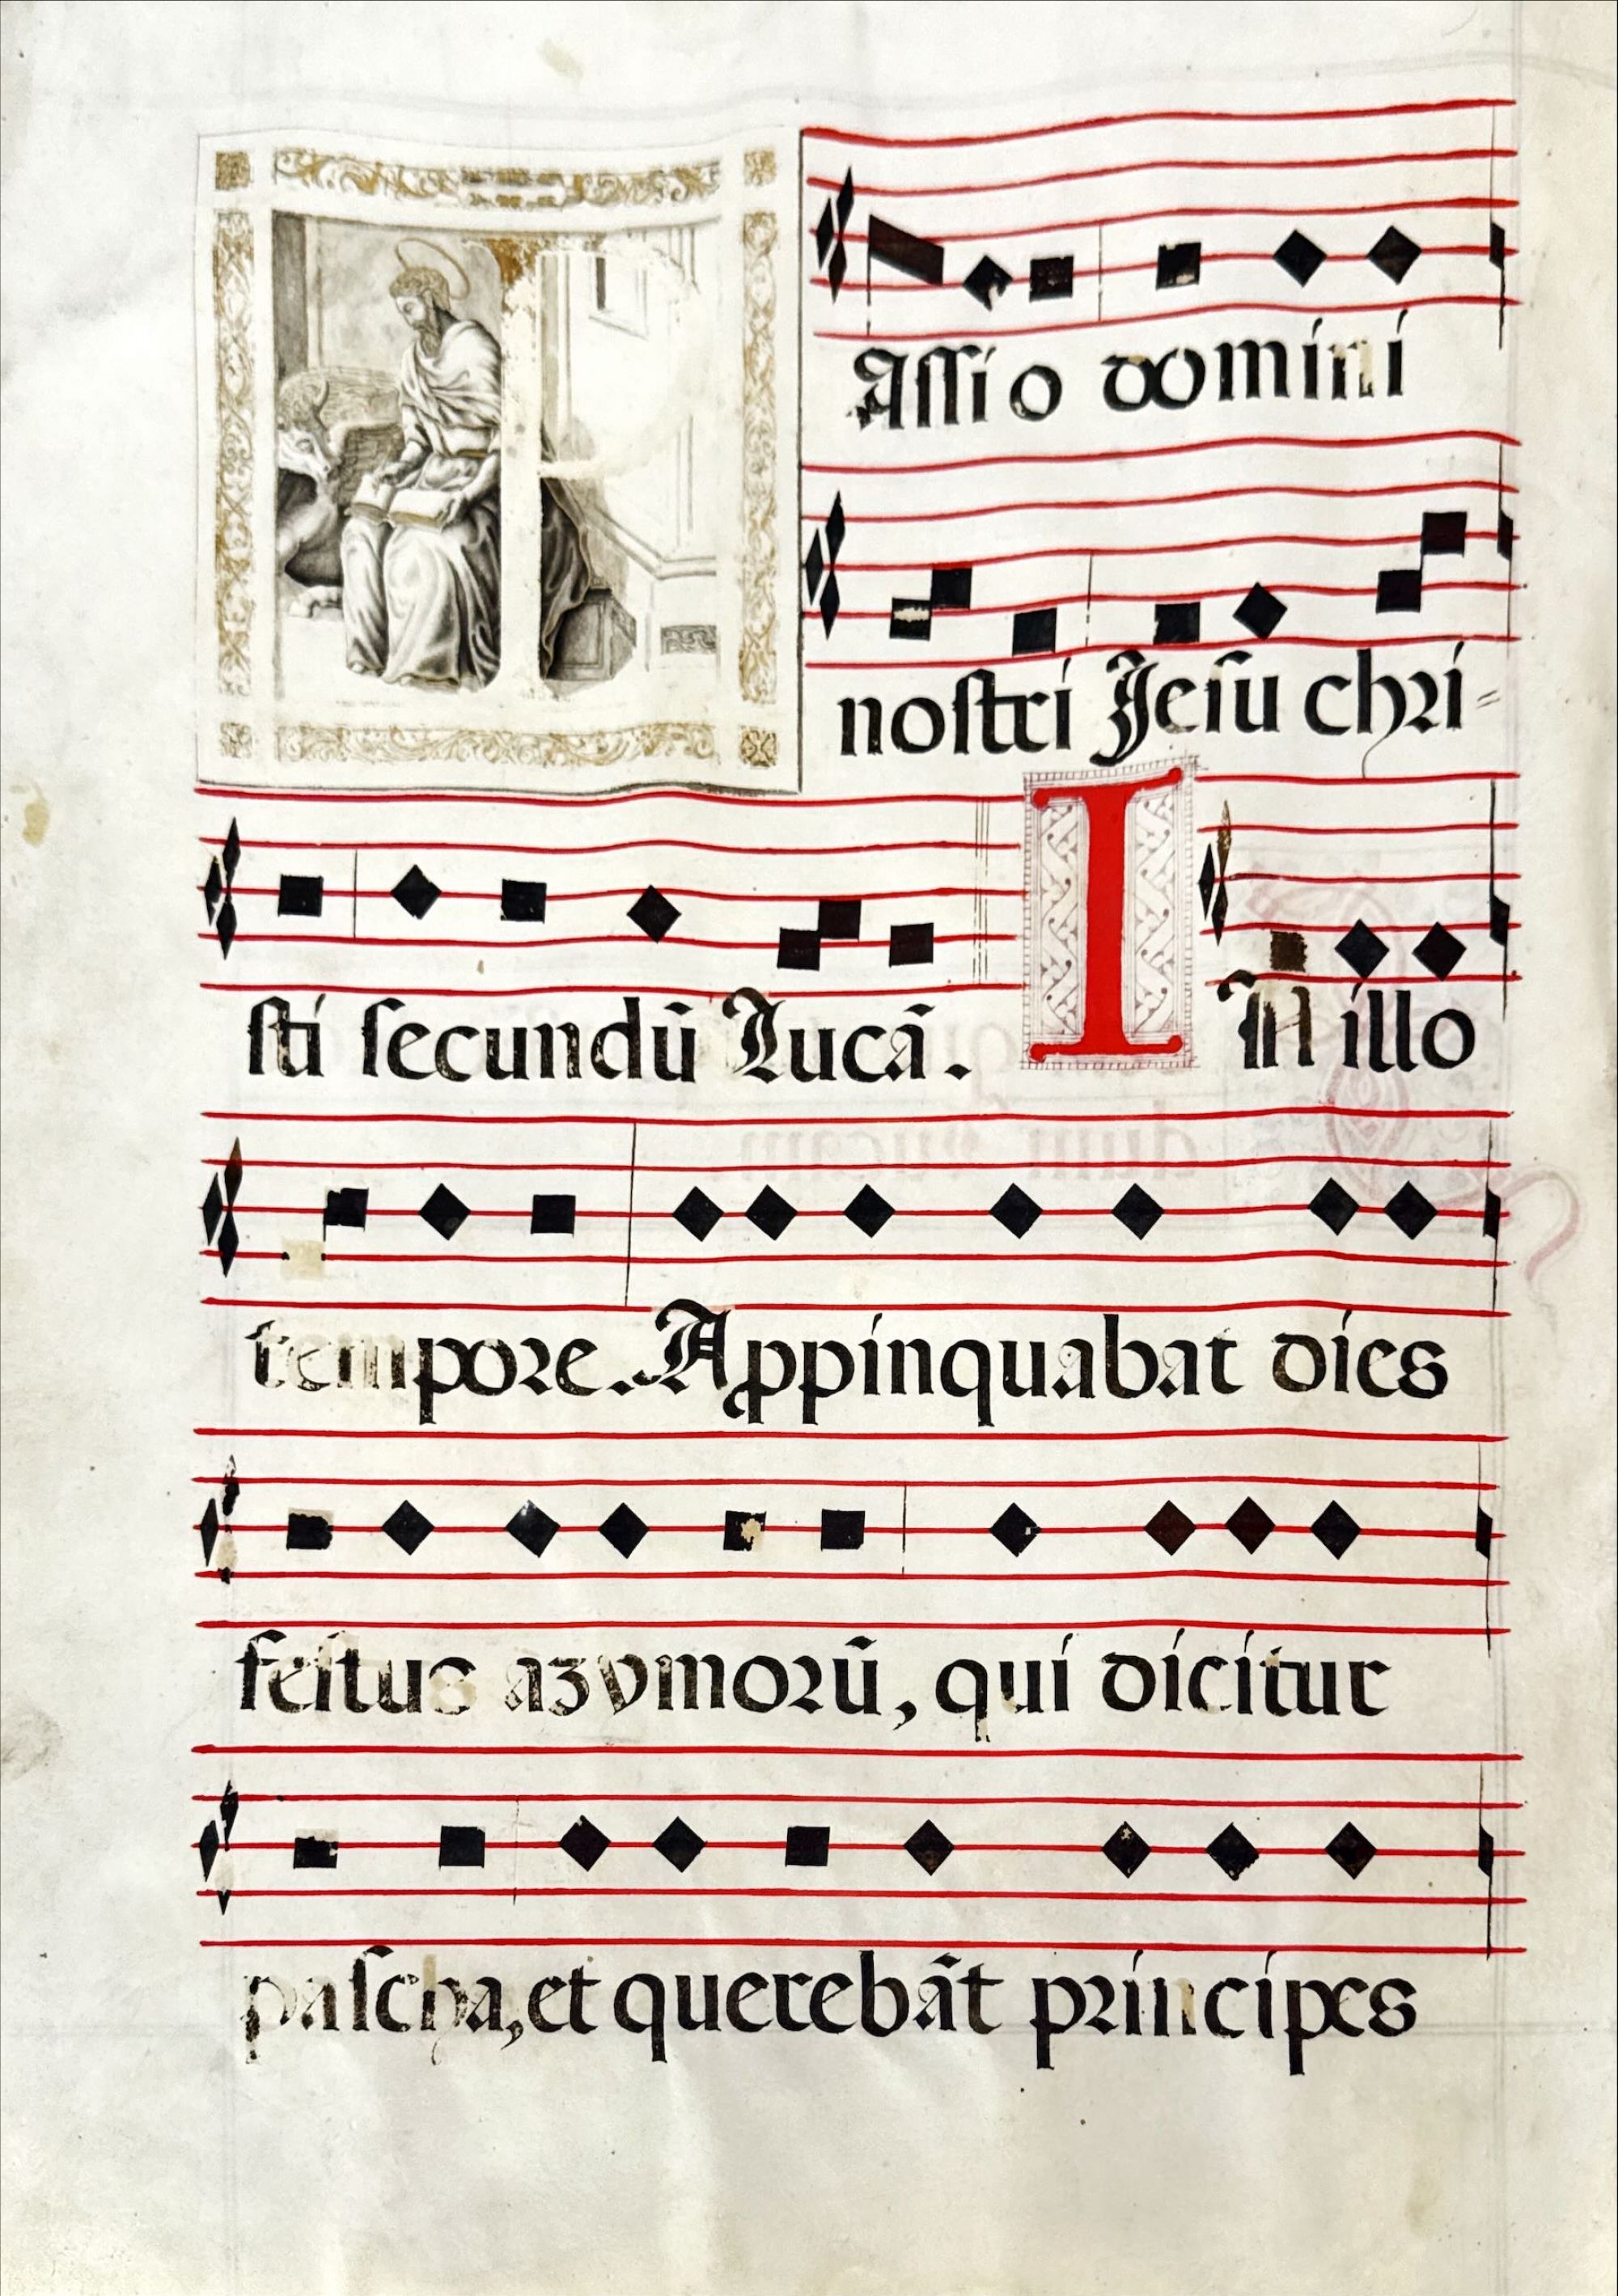 Assio domini
nostri Jesu chri-
sti secundū Lucā. I In illo
tempore. Appinquabat dies
festus azymorū, qui dicitur
pascha, et querebāt principes